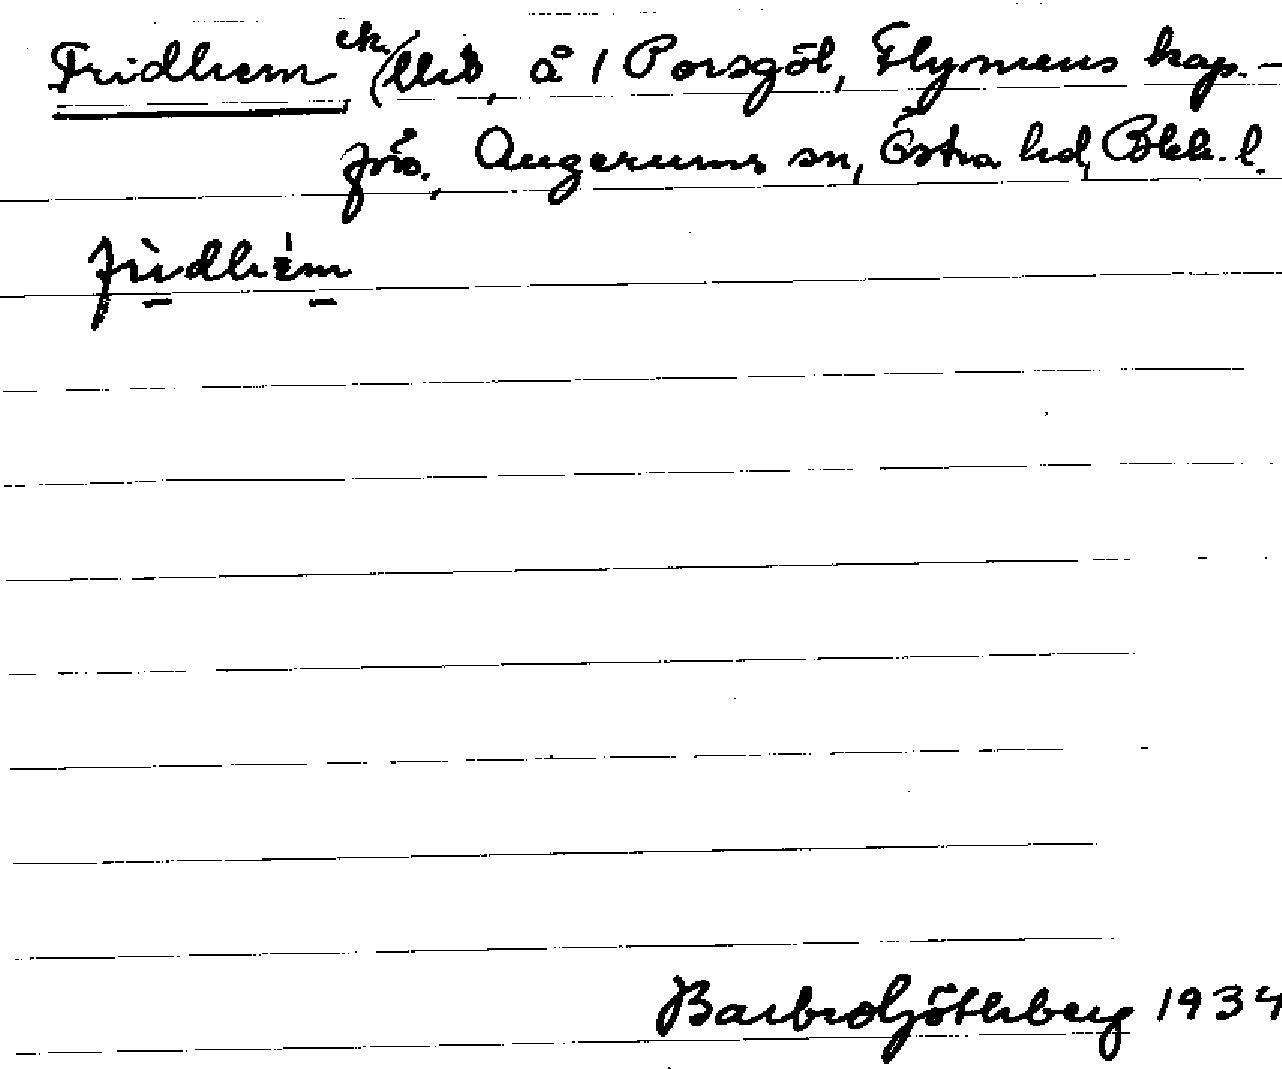 Fridhem, ek/lht, å 1 Porsgöl, Flymens kap.-
förs., Augerums sn, Östra hd, Blek. l.
fridhem
Barbro Götherberg 1934